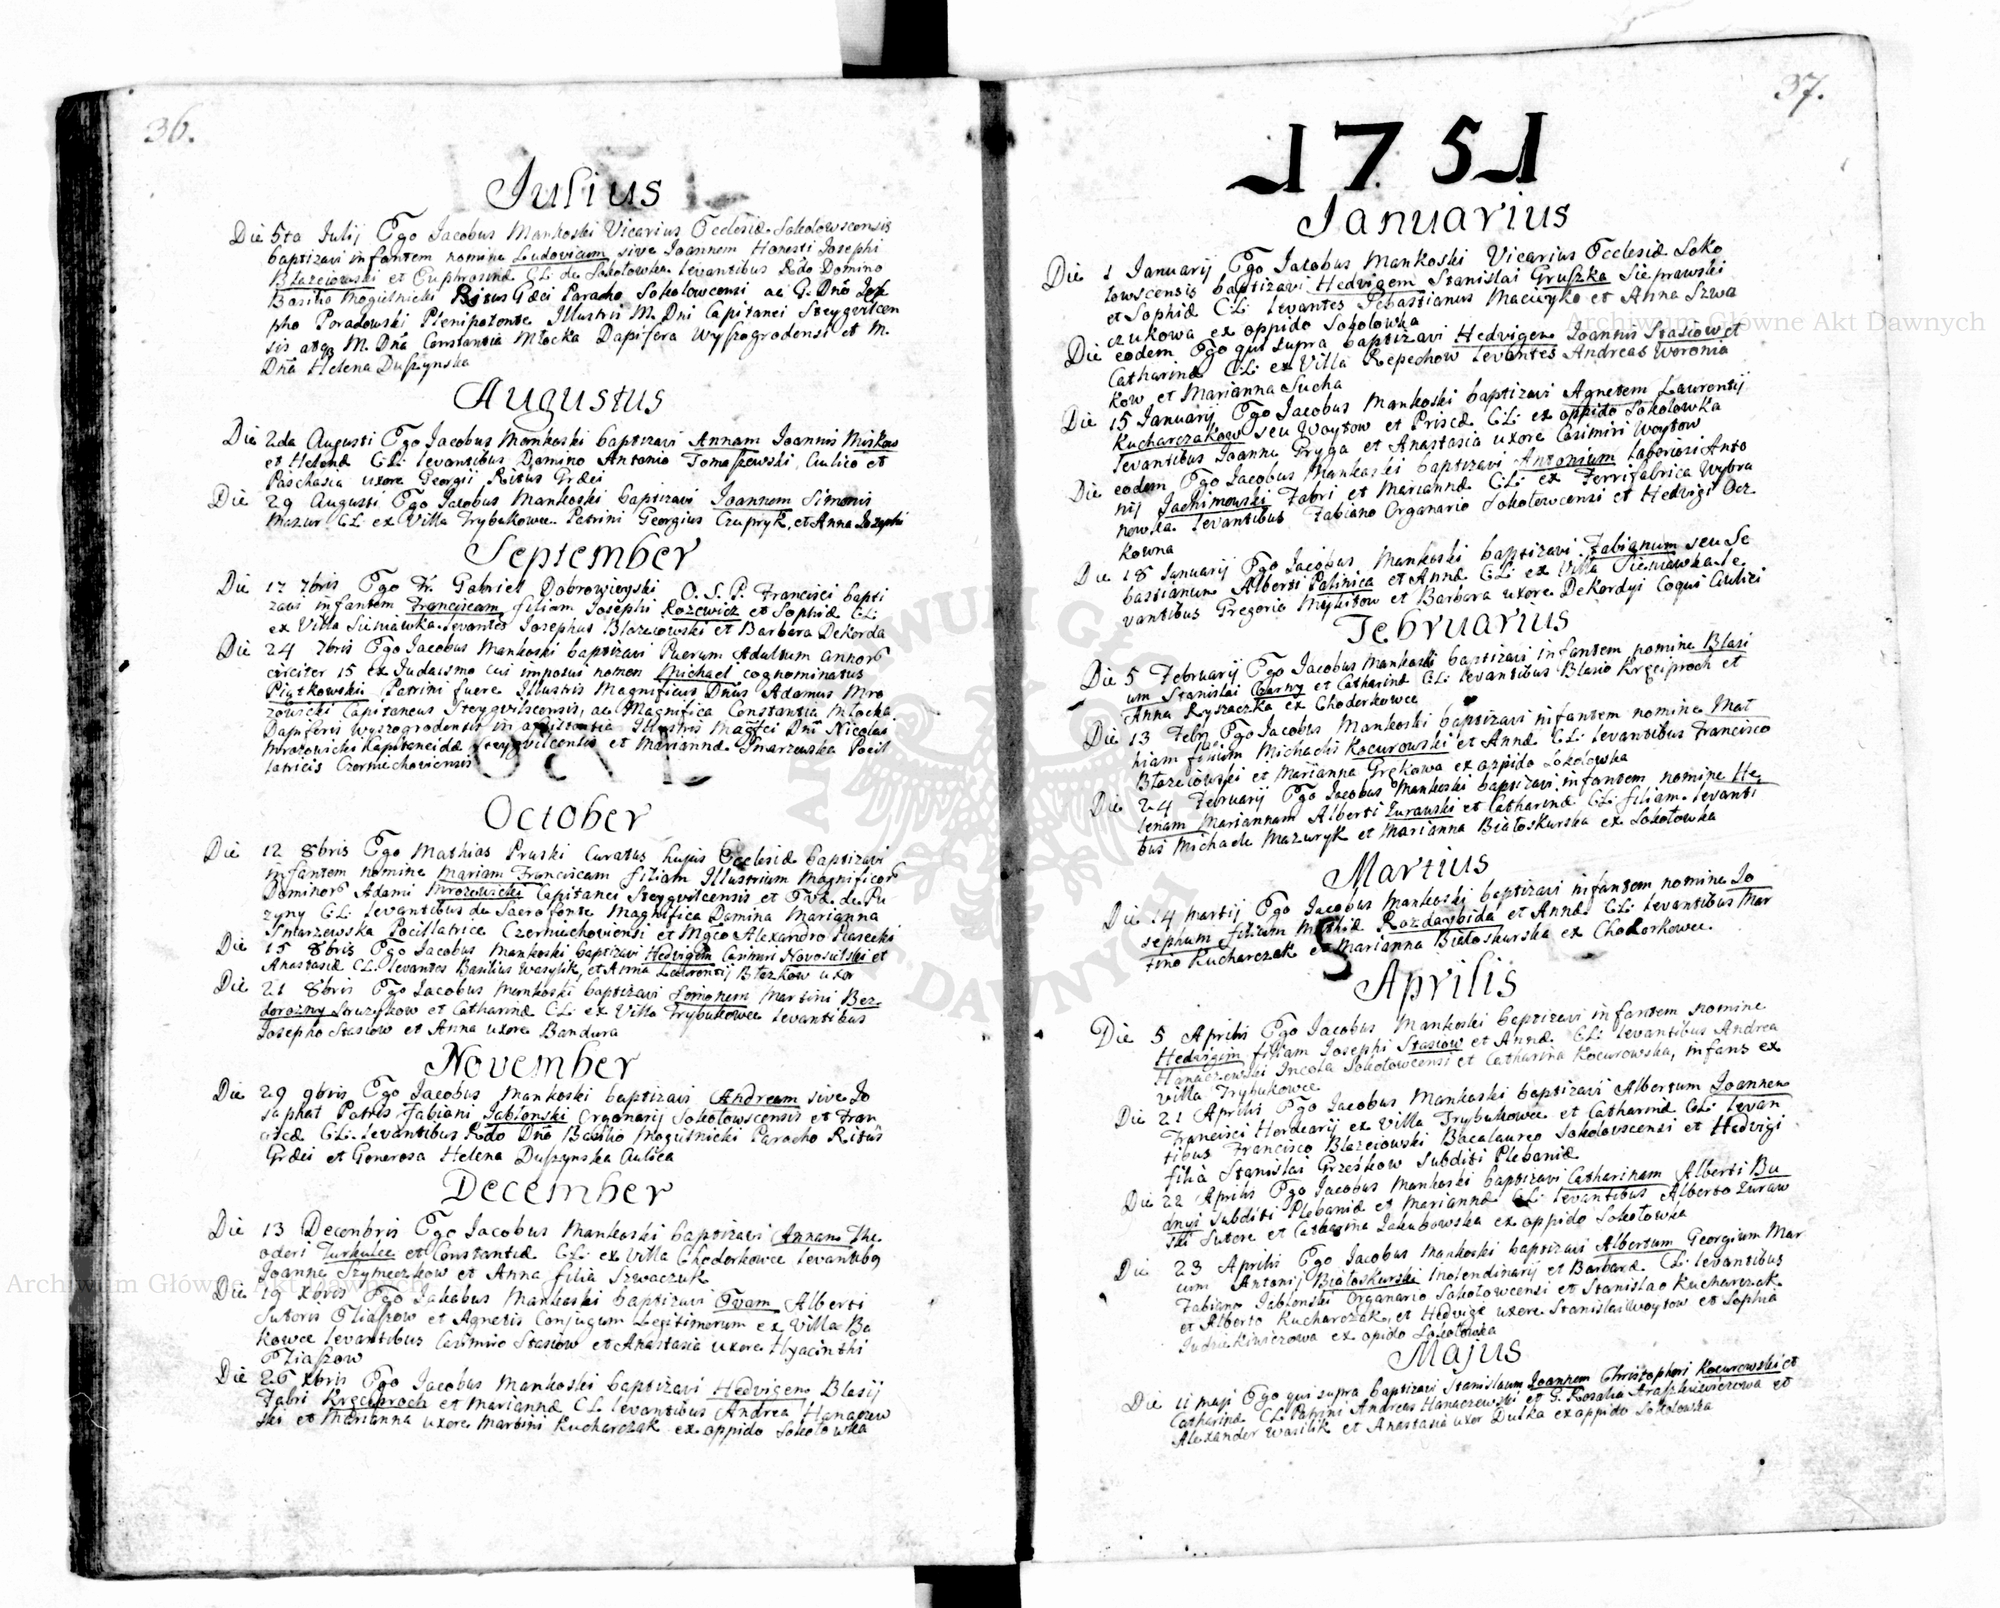 36.
Julius
Die 5ta Julij Ego Jacobus Mankoski Vicarius Ecclesiæ Sokolowscensis
baptizavi infantem nomine Ludovicum sive Joannem Honesti Josephi
Błazeiowski et Euphrosinæ CL: de Sokolowka levantibus Rdo Domino
Basilio Mogielnicki Ritus Græci Parocho Sokolowcensi ac G. Dno Jose
pho Poradowski Plenipotente Illustris M. Dni Capitanei Steygvilcen
sis atq M. Dna Constantia Młocka Dapifera Wyszogrodensi et M.
Dna Helena Duszynska
Augustus
Die 2da Augusti Ego Jacobus Mankoski baptizavi Annam Joannis Miskow
et Helenæ CL: levantibus Domino Antonio Tomaszewski, Aulico et
Paschasia uxore Georgii Ritus Græci
Die 29 Augusti Ego Jacobus Mankoski baptizavi Joannem Simonis
Mazur CL: ex Villa Trybukowce Patrini Georgius Czupryk, et Anna Josephi
September
Die 17 7bris Ego Fr. Gabriel Dobrowieyski O. S. P. Francisci bapti
zavi infantem Franciscam filiam Josephi Rozewicz et Sophiæ CL:
ex Villa Sieniawka levantes Josephus Blazeiowski et Barbara Dekorda
Die 24 7bris Ego Jacobus Mankoski baptizavi Puerum Adultum annor
circiter 15 ex Judaismo cui imposui nomen Michael cognominatus
Piątkowski Patrini fuere Illustris Magnificus Dnus Adamus Mro
zowicki Capitaneus Steygvilscensis, ac Magnifica Constantia Młocka
Dapifera Wyszogrodensis in assistentia Illustris Magfci Dni Nicolai
Mrozowicki Kapitaneidæ Steygvilcensis et Mariannæ Tmarzewska Pocil
latricis Czerniechoviensis
October
Die 12 8bris Ego Mathias Pruski Curatus hujus Ecclesiæ baptizavi
infantem nomine Mariam Franciscam filiam Illustrium Magnificor
Dominor Adami Mrozowicki Capitanei Steygvilcensis et Evæ de Pu
zyny CL: levantibus de Sacro fonte Magnifica Domina Marianna
Tmarzewska Pocillatrice Czerniechoviensi et Mgco Alexandro Piasecki
Die 15 8bris Ego Jacobus Mankoski baptizavi Hedvigem Casimiri Novosielski et
Anastasiæ CL: levantes Basilius Wasylik, et Anna Laurentij Błazkow uxor
Die 21 8bris Ego Jacobus Mankoski baptizavi Simonem Martini Bez
dorozny Struszkow et Catharinæ CL: ex Villa Trybukowce levantibus
Josepho Stasiow et Anna uxore Bandura
November
Die 29 9bris Ego Jacobus Mankoski baptizavi Andream sive Jo
saphat Patris Fabiani Jablonski Organarij Sokołowscensis et Fran
ciscæ CL: levantibus Rdo Dno Basilio Mogielnicki Parocho Ritus
Græci et Generosa Helena Duszynska Aulica
December
Die 13 Decembris Ego Jacobus Mankoski baptizavi Annam The
odori Turkulec et Constantiæ CL: ex Villa Chodorkowce levantibq
Joanne Szymeczkow et Anna filia Szwaczuk
Die 19 Xbris Ego Jakobus Mankoski baptizavi Evam Alberti
Sutoris Eliaszow et Agnetis Conjugum Legitimorum ex Villa Ba
kowce levantibus Casimiro Stasiow et Anastasia uxore Hyacinthi
Eliaszow
Die 26 Xbris Ego Jacobus Mankoski baptizavi Hedvigem Blasij
Fabri Kręciproch et Mariannæ CL levantibus Andrea Hanaczew
ski et Marianna uxore Martini Kucharczak ex oppido Sokołowka
37.
1751
Januarius
Die 1 Januarij Ego Jacobus Mankoski Vicarius Ecclesiæ Soko
lowscensis baptizavi Hedvigem Stanislai Gruszka Sieprawski
et Sophiæ CL: levantes Sebastianus Macieyko et Anna Szwa
czukowa ex oppido Sokolowka
Die eodem Ego qui supra baptizavi Hedvigem Joannis Stasiow et
Catharinæ CL: ex Villa Repechow levantes Andreas Woronia
kow et Marianna Sucha
Die 15 Januarij Ego Jacobus Mankoski baptizavi Agnetem Laurentij
Kucharczakow seu Woytow et Priscæ CL: ex oppido Sokolowka
levantibus Joanne Gryga et Anastasia uxore Casimiri Woytow
Die eodem Ego Jacobus Mankoski baptizavi Antonium laboriosi Anto
nij Jachimowski Fabri et Mariannæ CL: ex Ferrifabrica Wybra
nowka levantibus Fabiano Organario Sokołowcensi et Hedvigi Ocz
kowna
Die 18 Januarij Ego Jacobus Mankoski baptizavi Fabianum seu Se
bastianum Alberti Palinica et Annæ CL: ex Villa Sieniawka le
vantibus Gregorio Mykitow et Barbara uxore Dekordyi Coqui Aulici
Februarius
Die 5 Februarij Ego Jacobus Mankoski baptizavi infantem nomine Blasi
um Stanislai Czarny et Catharinæ CL: levantibus Blasio Kręciproch et
Anna Ryszaczka ex Chodorkowce
Die 13 Febr Ego Jacobus Mankoski baptizavi infantem nomine Mat
hiam filium Michaelis Kocurowski et Annæ CL: levantibus Francisco
Błazeiowski et Marianna Grękowa ex oppido Sokolowka
Die 24 Februarij Ego Jacobus Mankoski baptizavi infantem nomine He
lenam Mariannam Alberti Zurawski et Catharinæ CL: filiam levanti
bus Michaele Mazuryk et Marianna Białoskurska ex Sokołowka
Martius
Die 14 Martij Ego Jacobus Mankoski baptizavi infantem nomine Jo
sephum filium Mathiæ Rozdaybida et Annæ CL: levantibus Mar
tino Kucharczak et Marianna Białoskurska ex Chodorkowce.
Aprilis
Die 5 Aprilis Ego Jacobus Mankoski baptizavi infantem nomine
Hedvigem filiam Josephi Stasiow et Annæ CL: levantibus Andrea
Hanaczewski Incola Sokołowcensi et Catharina Kocurowska, infans ex
villa Trybukowce
Die 21 Aprilis Ego Jacobus Mankoski baptizavi Albertum Joannem
Francisci Hordearij ex Villa Trybukowce et Catharinæ CL: levan
tibus Francisco Blazeiowski Bacalaureo Sokolovscensi et Hedvigi
filia Stanislai Grześkow Subditi Plebaniæ
Die 22 Aprilis Ego Jacobus Mankoski baptizavi Catharinam Alberti Bu
dnyi subditi Plebaniæ et Mariannæ CL: levantibus Alberto Zuraw
ski Sutore et Catharina Jakubowska ex oppido Sokołowka
Die 23 Aprilis Ego Jacobus Mankoski baptizavi Albertum Georgium Mar
cum Antonij Białoskurski Molendinarij et Barbaræ CL: levantibus
Fabiano Jablonski Organario Sokołowcensi et Stanislao Kucharczak
et Alberto Kucharczak, et Hedvige uxore Stanislai Woytow et Sophia
ex opido Sokołowka
Majus
Die 11 maji Ego qui supra baptizavi Stanislaum Joannem Christophori Kocurowski et
Catharinæ CL: Patrini Andreas Hanaczewski et G. Rosalia Araszkiewiczowa et
Alexander Wasilik et Anastasia uxor Dulka ex oppido Sokolowka
Archiwum Główne Akt Dawnych
Archiwum Główne Akt Dawnych
ARCHIWUM GŁÓWNE AKT DAWNYCH